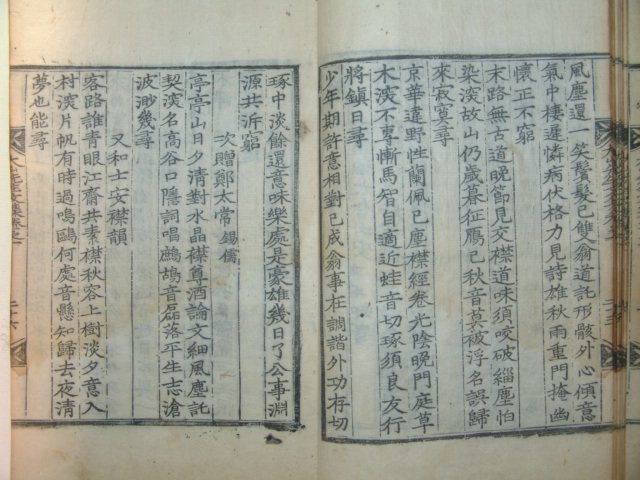 風塵還一笑鬢髮已雙翁道託形骸外心傾意
氣中棲遲憐病伏格力見詩雄秋雨重門掩幽
懷正不窮
末路無古道晚節見交襟道味須咬破緇塵怕
染深故山仍歲暮征鴈已秋音莫被浮名誤歸
來寂寞尋
京華違野性蘭佩已塵襟經卷光陰晚門庭草
木深不專慚馬智自適近蛙音切琢須良友行
將鎮日尋
少年期許意相對已成翁事在調諧外功存切
琢中淡餘還意味樂處是豪雄幾日了公事淵
源共泝窮
次贈鄭太常錫儒
亭亭山日夕清對水晶襟尊酒論文細風塵託
契深名高谷口隱詞唱鷓鴣音磊落平生志滄
波渺幾尋
又和士安襟韻
客路誰青眼江齋共素襟秋容上樹淡夕意入
村深片帆有時過鳴鷗何處音懸知歸去夜清
夢也能尋